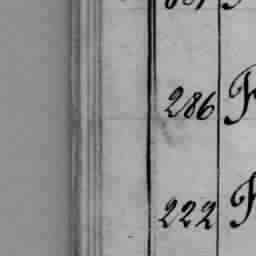 286 F
222 F